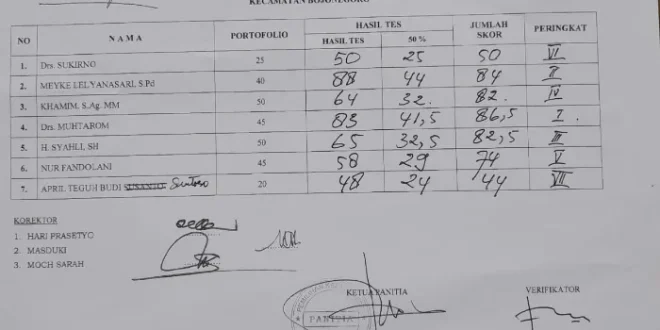 KECAMATAN BOJONEGORO
NO NAMA PORTOFOLIO HASIL TES JUMLAH SKOR PERINGKAT
HASIL TES 50 %
1. Drs. SUKIRNO 25 50 25 50 VI
2. MEYKE LELYANASARI, S.Pd 40 88 44 84 II
3. KHAMIM, S.Ag. MM 50 64 32. 82. IV
4. Drs. MUHTAROM 45 83 41,5 86,5 I.
5. H. SYAHLI, SH 50 65 32,5 82,5 III
6. NUR FANDOLANI 45 58 29 74 V
7. APRIL TEGUH BUDI SUSANTO Santoso 20 48 24 44 VII
KOREKTOR
1. HARI PRASETYO
2. MASDUKI
3. MOCH SARAH
KETUA PANITIA VERIFIKATOR
PANITIA